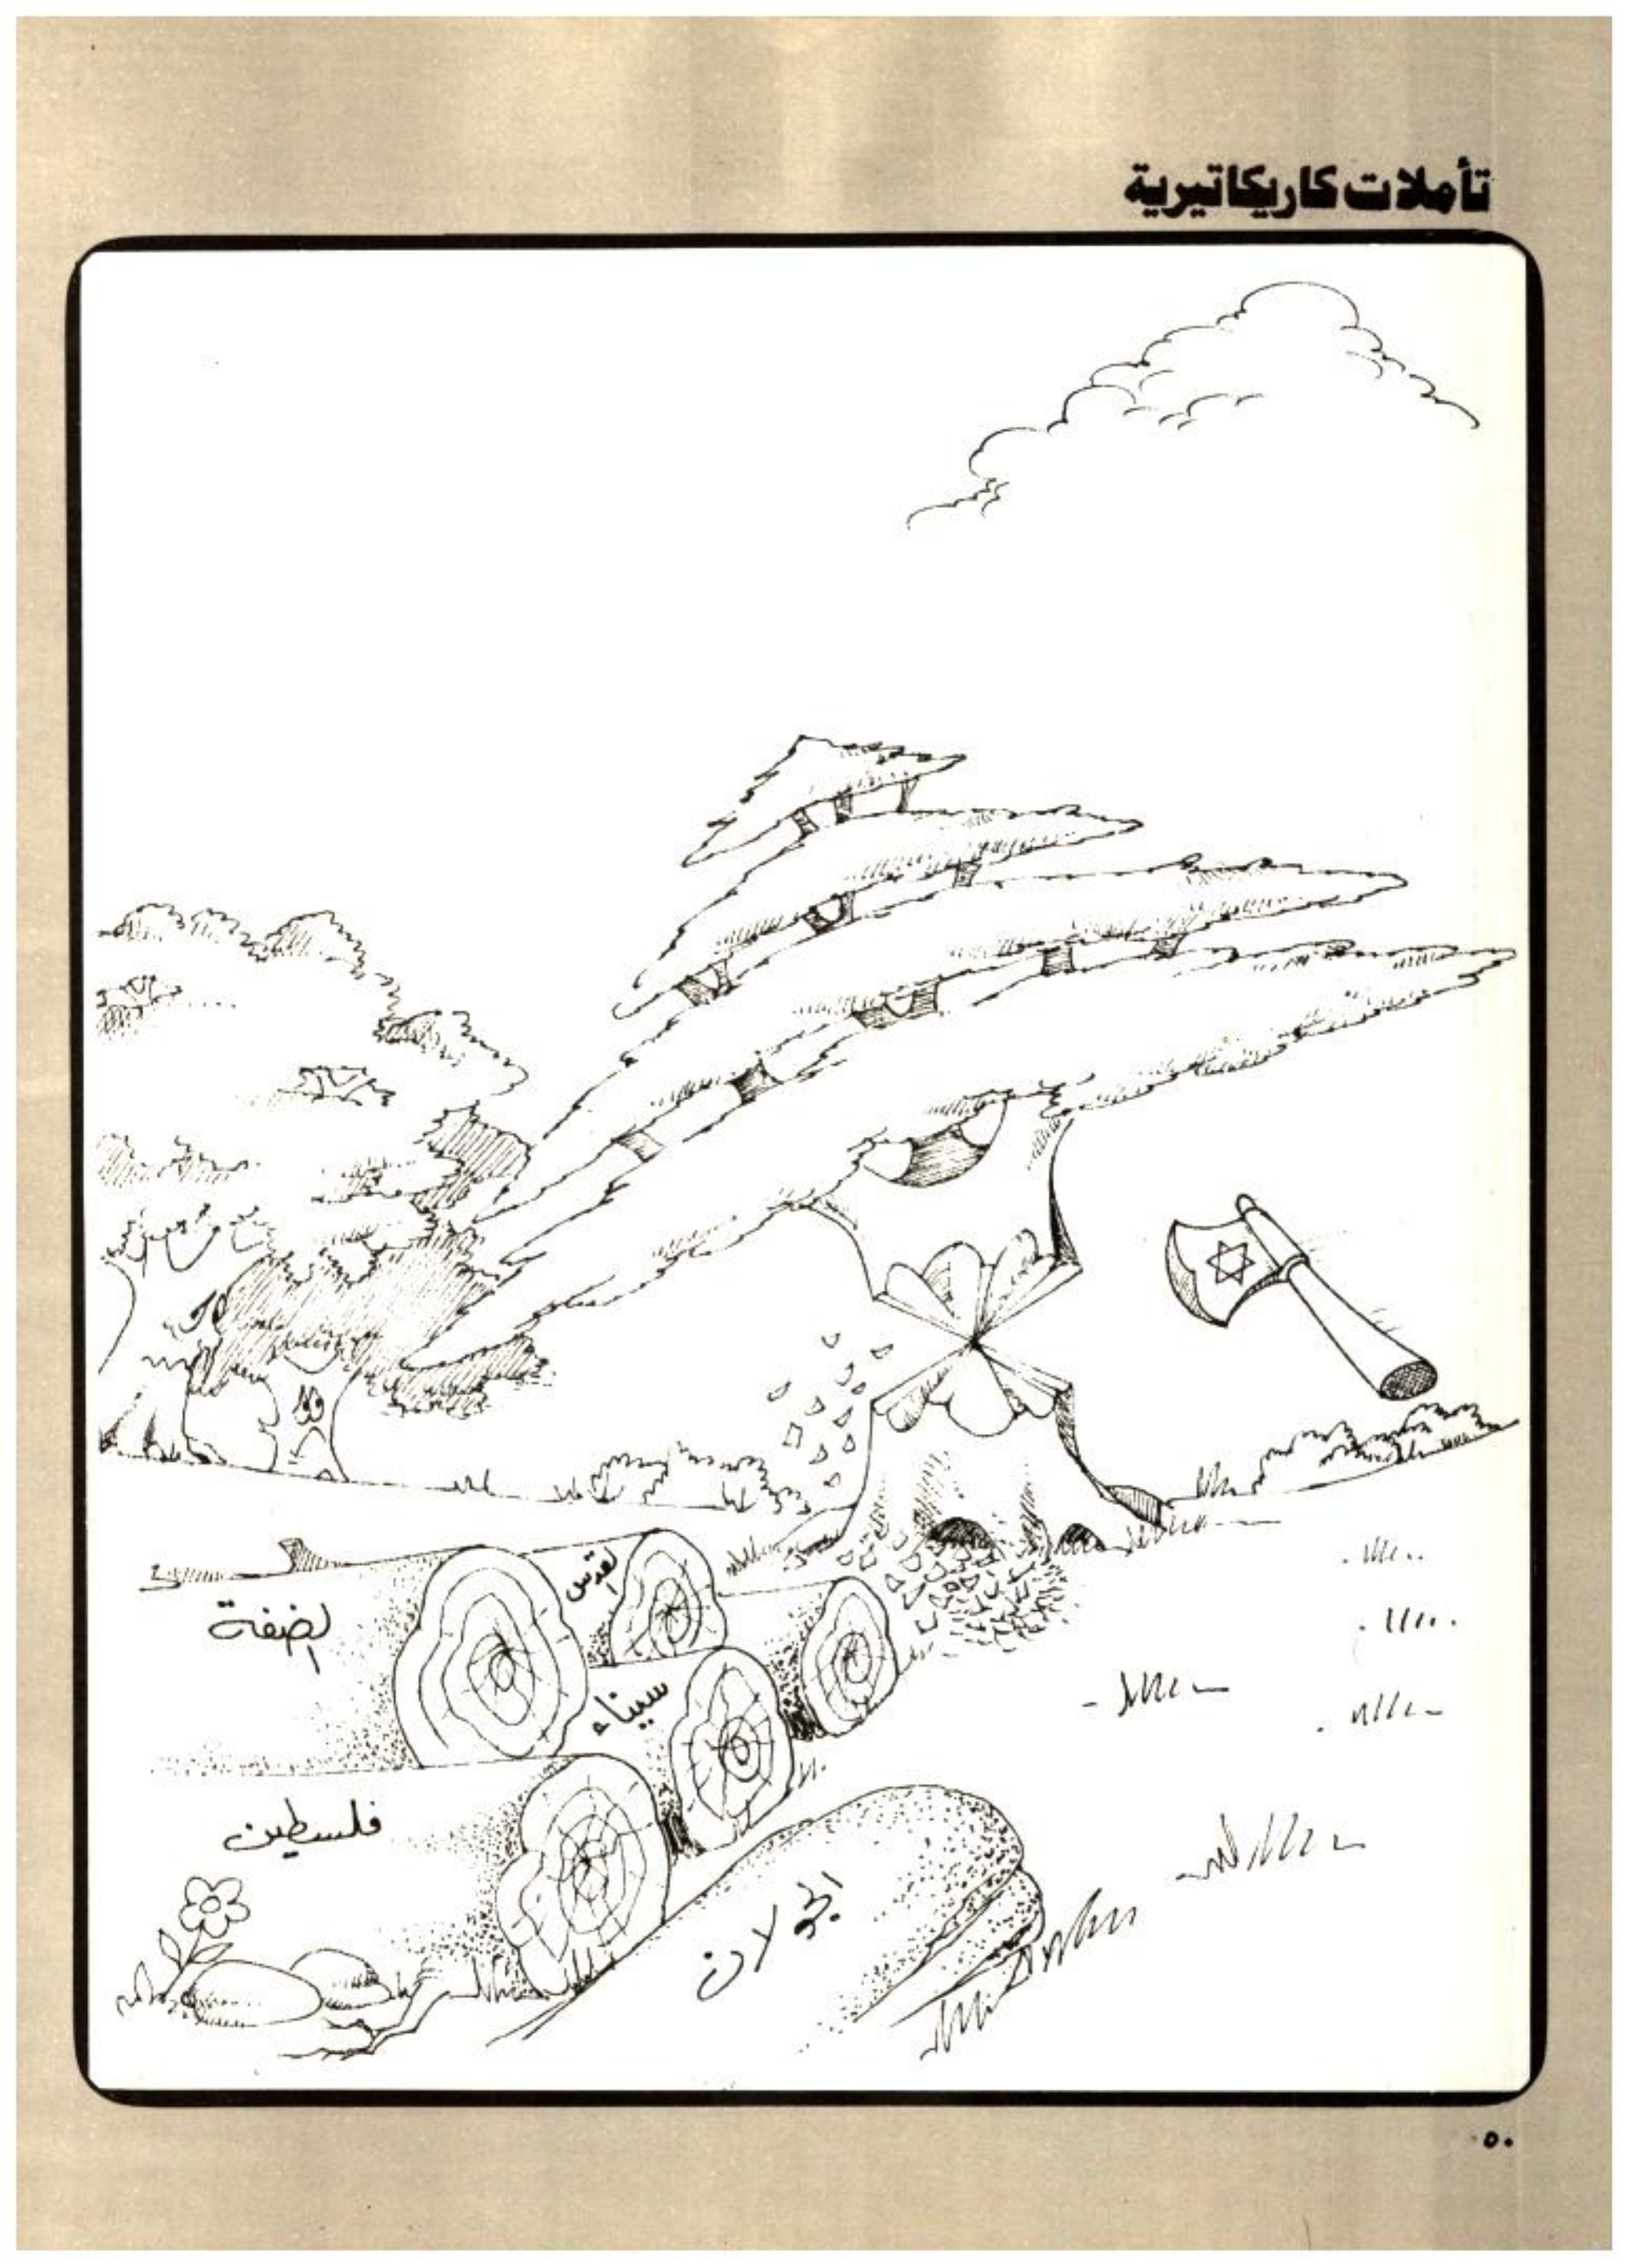 تأملات كاريكاتيرية
القدس
الضفة
سيناء
فلسطين
الجولان
٥٠